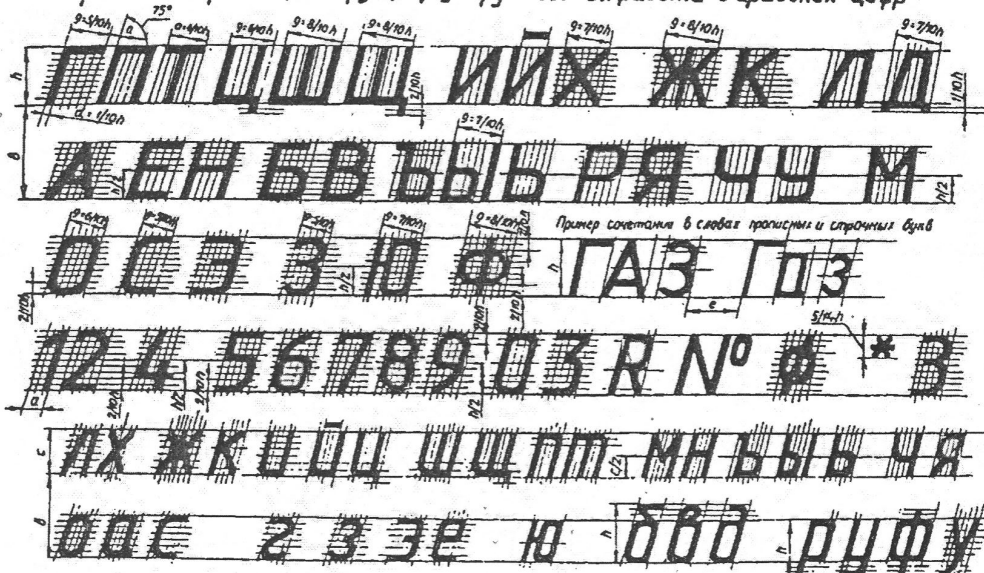 g=5/10h 75° а а=6/10h g=6/10h g=8/10h g=8/10h g=7/10h g=8/10h g=7/10h
h Г П Т Ц Ш Щ И Й Х Ж К Л Д
а=1/10h 2/10h 1/10h
g=7/10h
в А Е Н Б В Ъ Ы Ь Р Я Ч У М
h/2 h/2
g=6/10h g=7/10h g=8/10h Пример сочетания в словах прописных и строчных букв
О С Э З Ю Ф h ГАЗ Газ
2/10h h/2 е
5/14h
1 2 4 5 6 7 8 9 0 3 R № ф * З
а 2/10h h/2 2/10h h/2
с л х ж к и й ц ш щ п т с/2 м н ъ ы ь ч я
в о а с г з э е ю h б в д h р у ф у